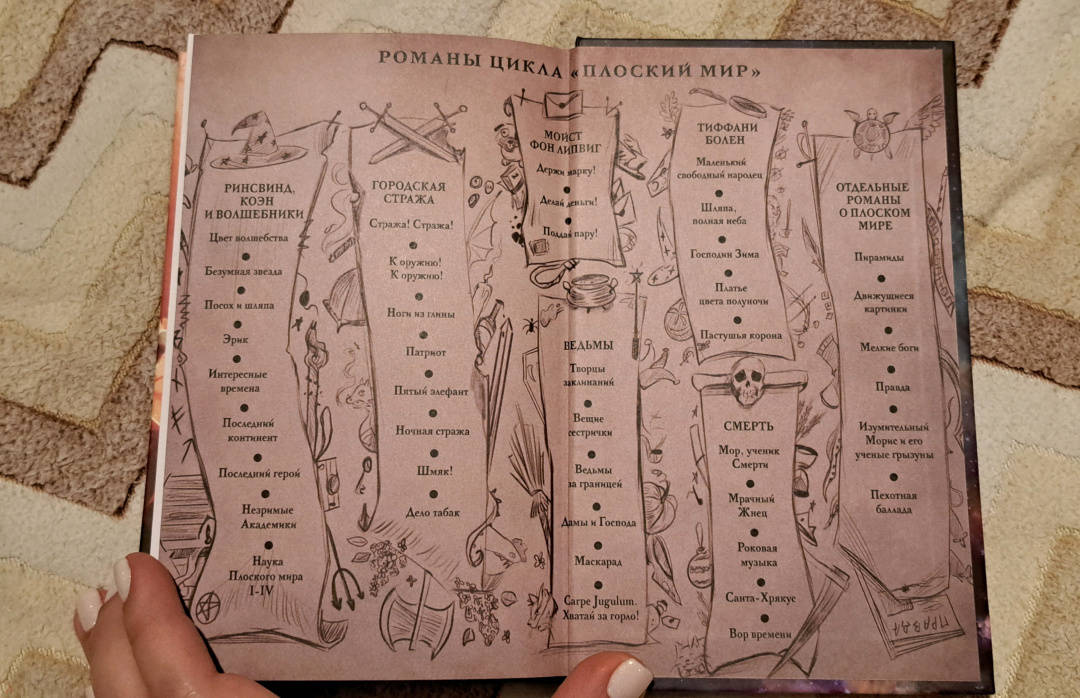 РОМАНЫ ЦИКЛА «ПЛОСКИЙ МИР»
РИНСВИНД,
КОЭН
И ВОЛШЕБНИКИ
Цвет волшебства
Безумная звезда
Посох и шляпа
Эрик
Интересные
времена
Последний
континент
Последний герой
Незримые
Академики
Наука
Плоского мира
I-IV
ГОРОДСКАЯ
СТРАЖА
Стража! Стража!
К оружию!
К оружию!
Ноги из глины
Патриот
Пятый элефант
Ночная стража
Шмяк!
Дело табак
МОЙСТ
ФОН ЛИПВИГ
Держи марку!
Делай деньги!
Поддай пару!
ВЕДЬМЫ
Творцы
заклинаний
Вещие
сестрички
Ведьмы
за границей
Дамы и Господа
Маскарад
Carpe Jugulum.
Хватай за горло!
ТИФФАНИ
БОЛЕН
Маленький
свободный народец
Шляпа,
полная неба
Господин Зима
Платье
цвета полуночи
Пастушья корона
СМЕРТЬ
Мор, ученик
Смерти
Мрачный
Жнец
Роковая
музыка
Санта-Хрякус
Вор времени
ОТДЕЛЬНЫЕ
РОМАНЫ
О ПЛОСКОМ
МИРЕ
Пирамиды
Движущиеся
картинки
Мелкие боги
Правда
Изумительный
Морис и его
ученые грызуны
Пехотная
баллада
ПРАВДА